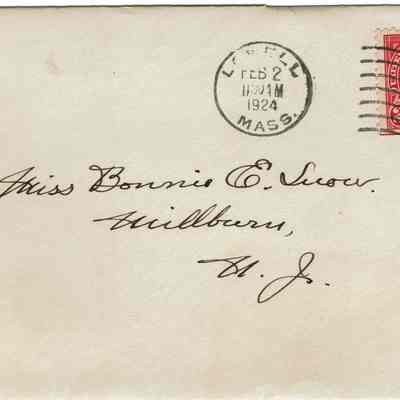 LOWELL
FEB 2
1924
MASS.
Miss Bonnie E. Snow.
Millburn,
N. J.